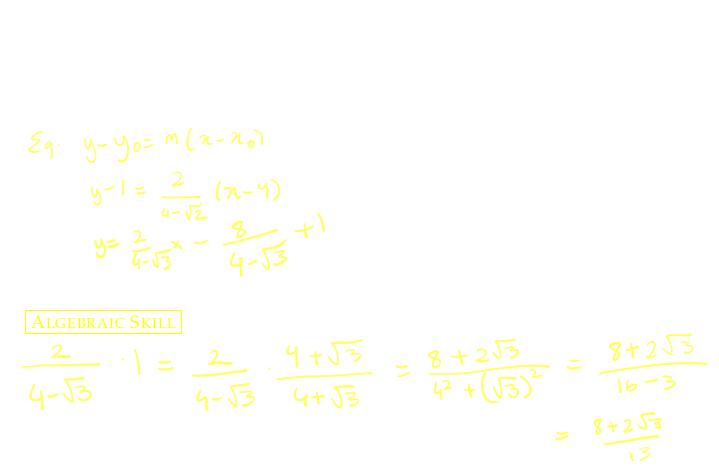 Eg. y-y₀ = m(x-x₀)
y-1 = 2/(4-√2) (x-4)
y = 2/(4-√3) x - 8/(4-√3) + 1
ALGEBRAIC SKILL
2/(4-√3) · 1 = 2/(4-√3) · (4+√3)/(4+√3) = (8+2√3)/(4²+(√3)²) = (8+2√3)/(16-3)
= (8+2√3)/13